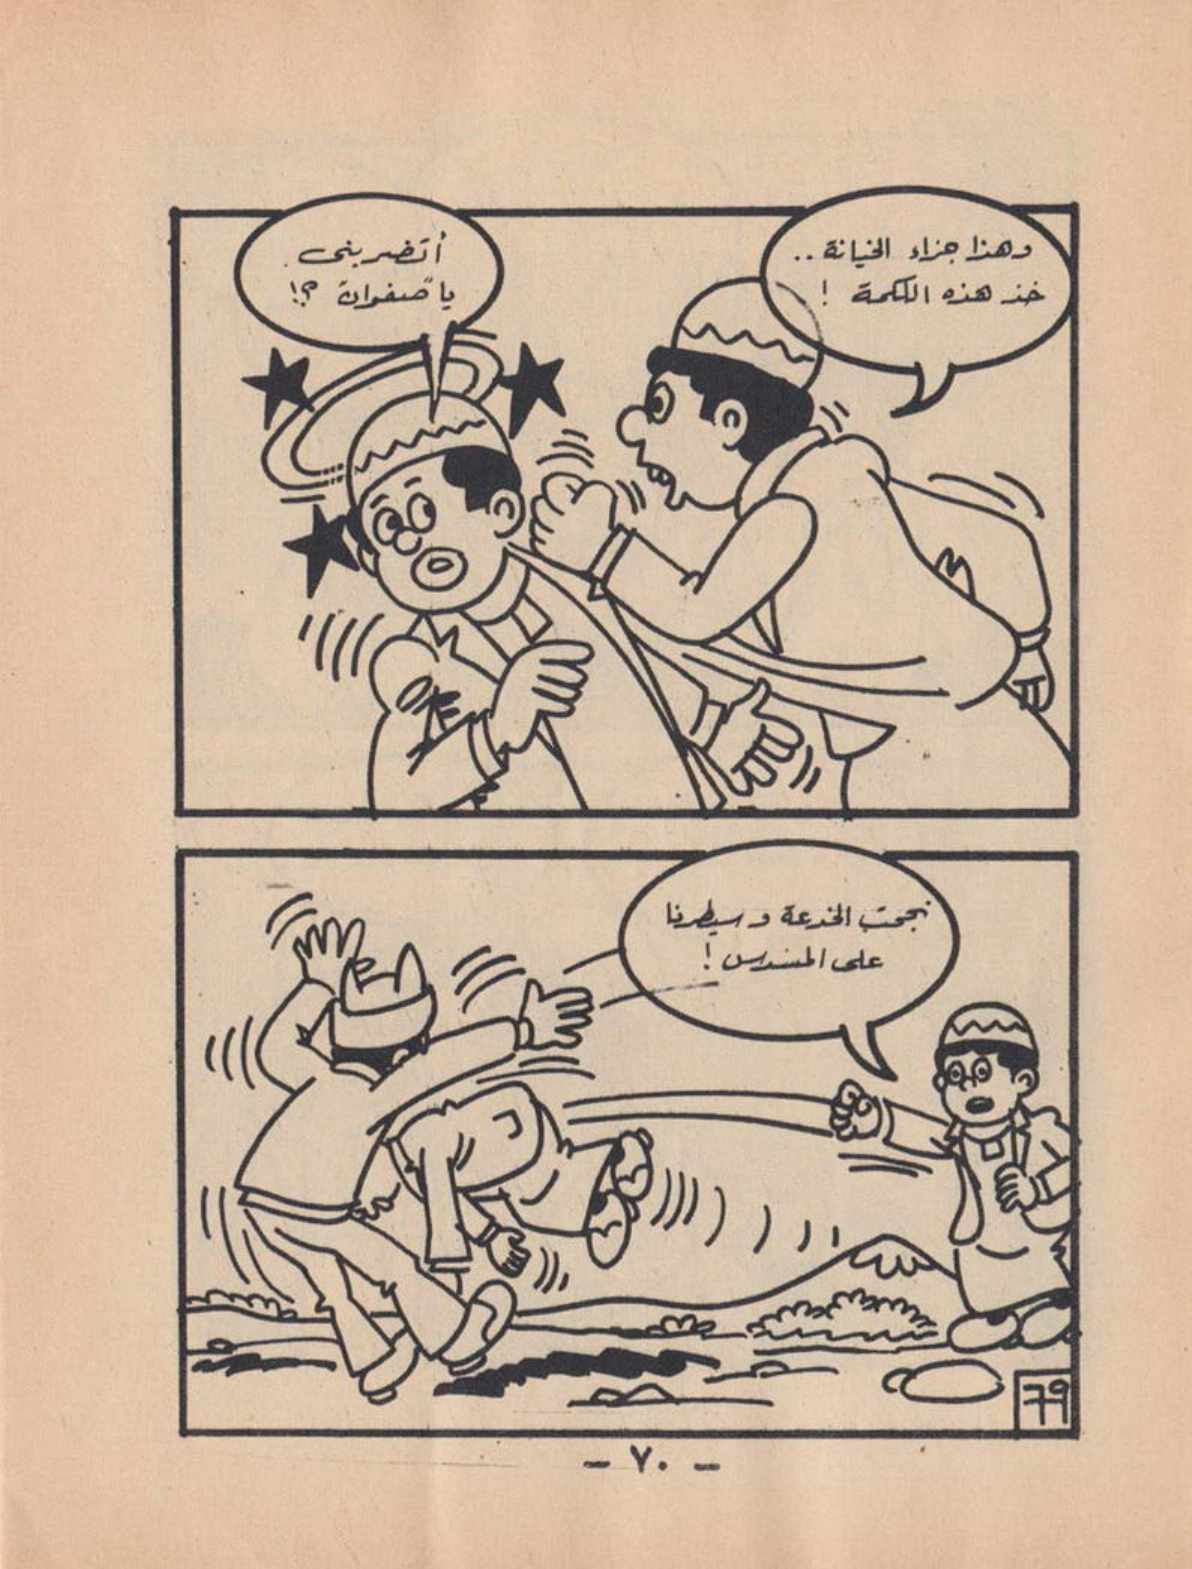 وهذا جزاء الخيانة ..
خذ هذه اللكمة !
أتضربنى
يا صفوان ؟!
نجحت الخدعة وسيطرنا
على المسدس !
79
- ٧٠ -